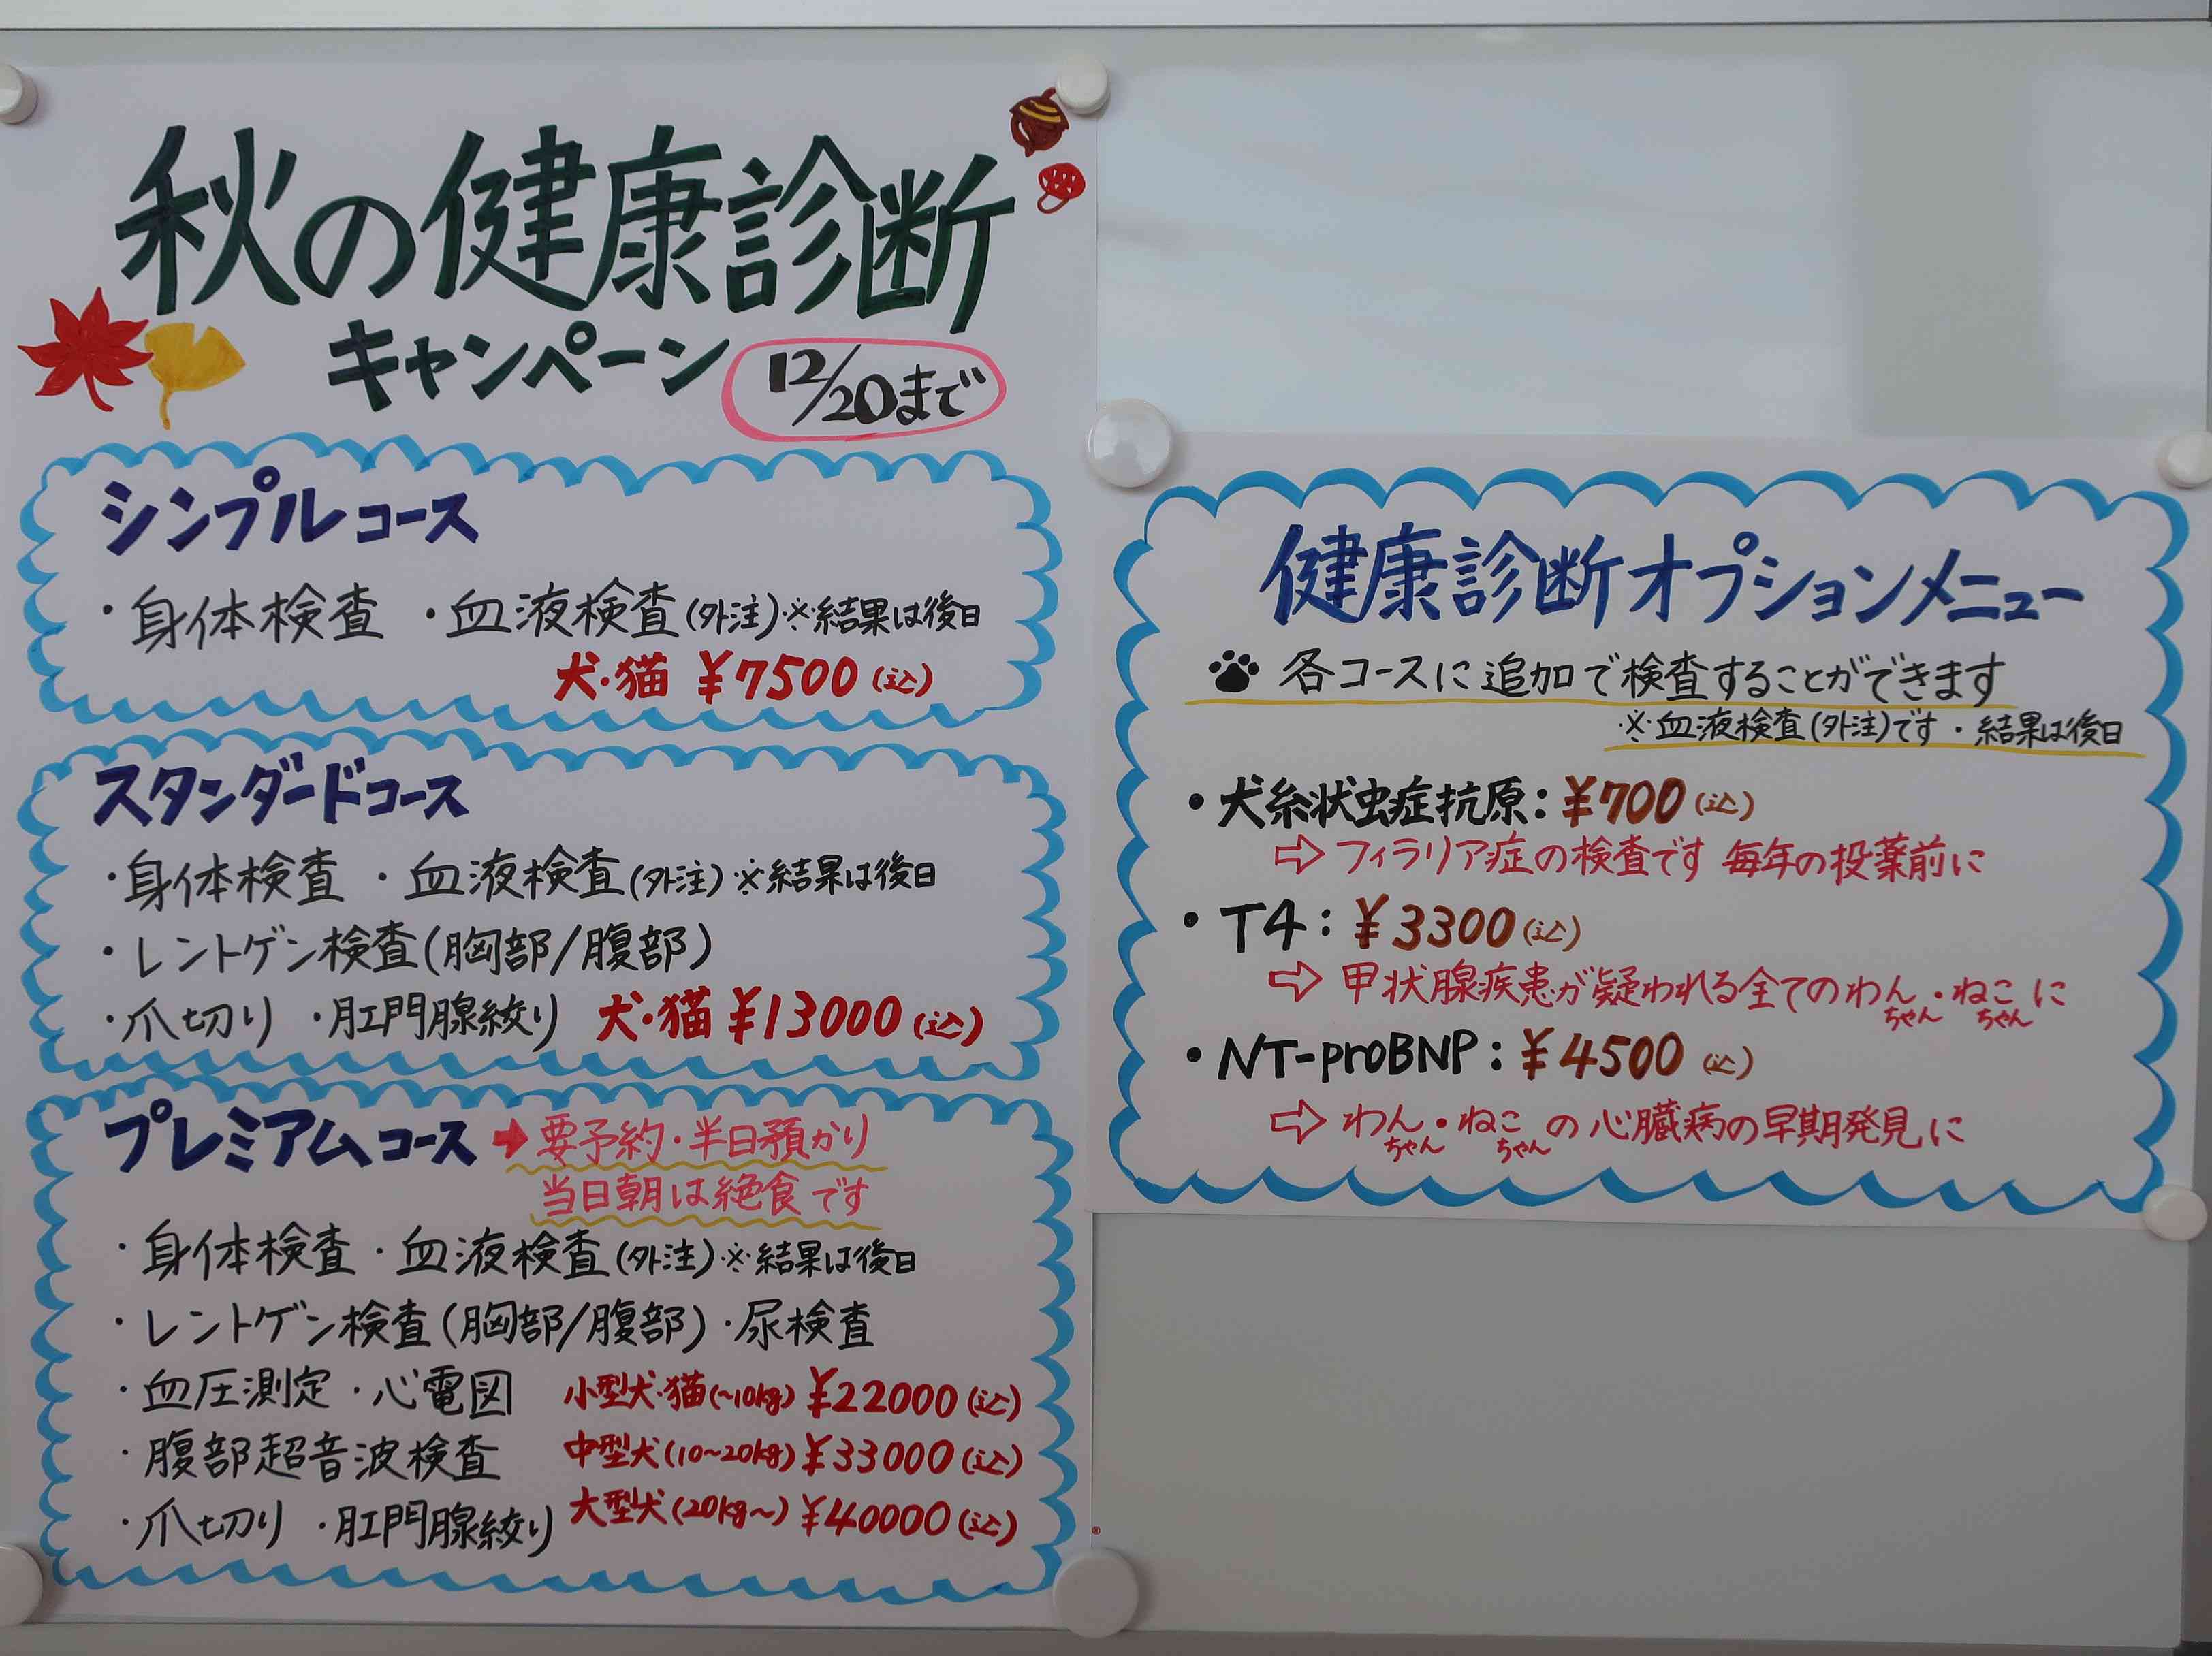 秋の健康診断
キャンペーン 12/20まで
シンプルコース
・身体検査 ・血液検査(外注)※結果は後日
犬・猫 ¥7500(込)
スタンダードコース
・身体検査 ・血液検査(外注)※結果は後日
・レントゲン検査(胸部/腹部)
・爪切り ・肛門腺絞り 犬・猫 ¥13000(込)
プレミアムコース→要予約・半日預かり
当日朝は絶食です
・身体検査 ・血液検査(外注)※結果は後日
・レントゲン検査(胸部/腹部) ・尿検査
・血圧測定 ・心電図 小型犬・猫(~10kg) ¥22000(込)
・腹部超音波検査 中型犬(10~20kg) ¥33000(込)
・爪切り ・肛門腺絞り 大型犬(20kg~) ¥40000(込)
健康診断オプションメニュー
各コースに追加で検査することができます
※血液検査(外注)です・結果は後日
・犬糸状虫症抗原:¥700(込)
⇨フィラリア症の検査です 毎年の投薬前に
・T4:¥3300(込)
⇨甲状腺疾患が疑われる全てのわんちゃん・ねこちゃんに
・NT-proBNP:¥4500(込)
⇨わんちゃん・ねこちゃんの心臓病の早期発見に